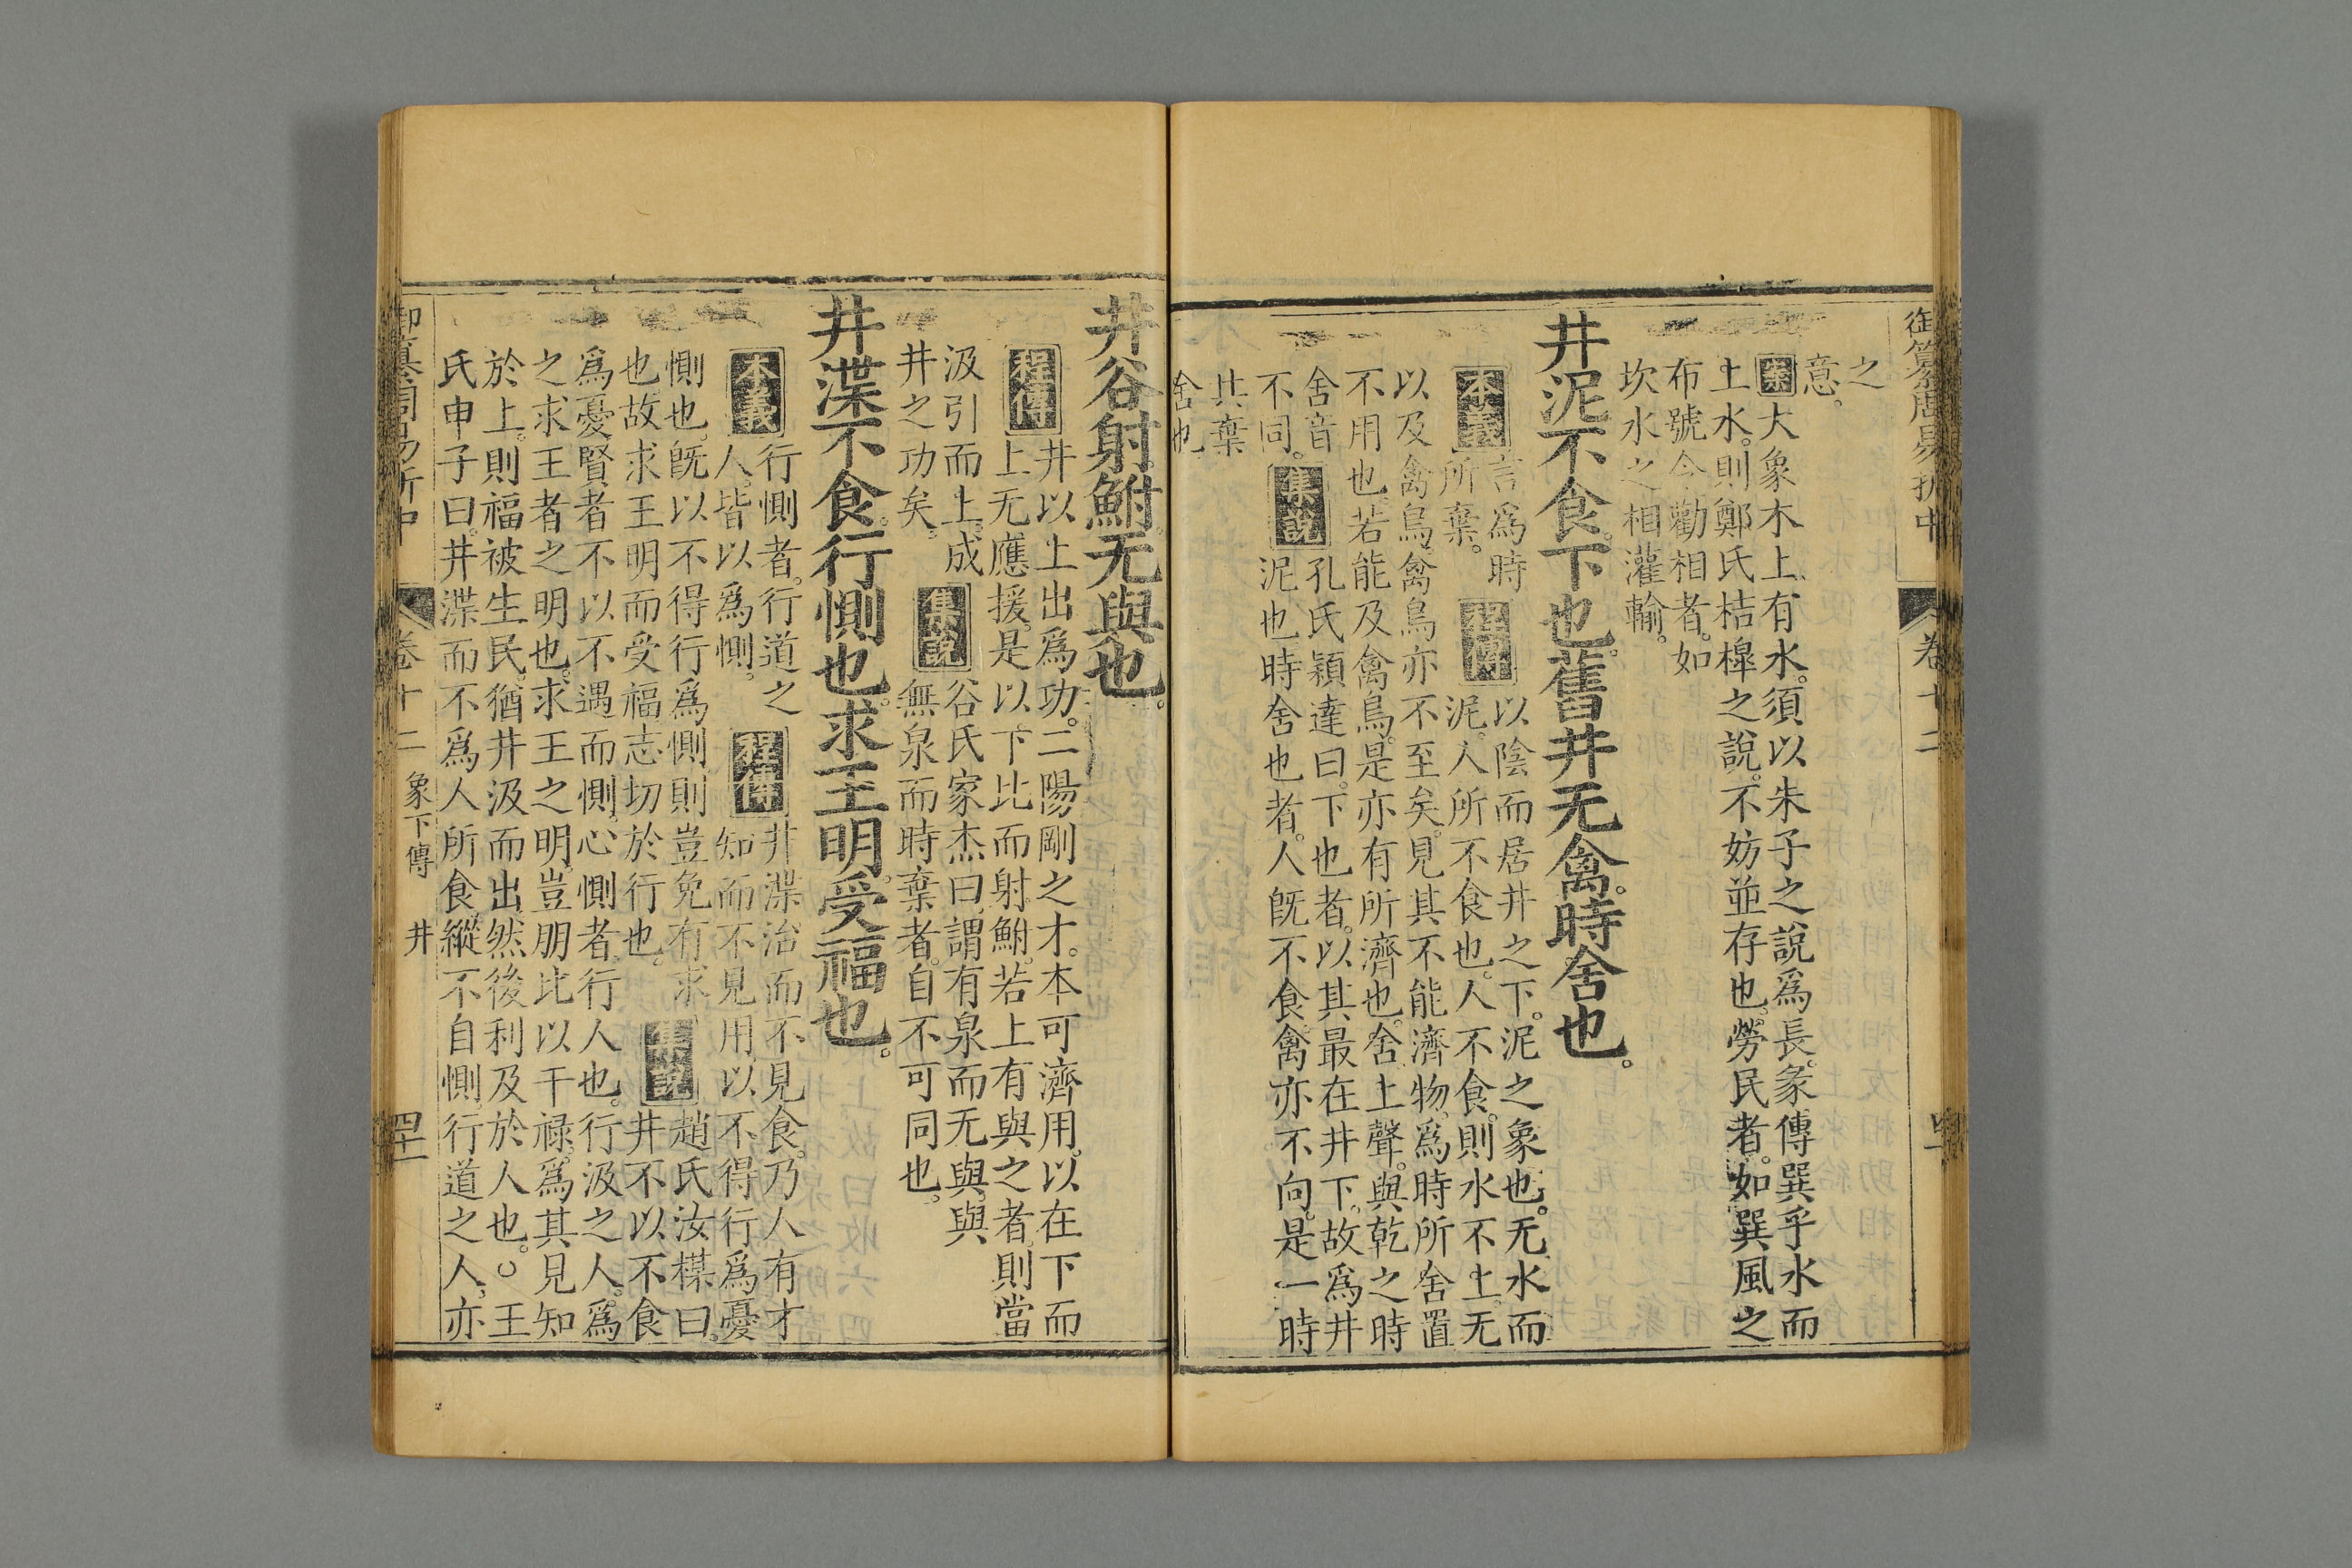 御纂周易折中
卷十二
之
意。
案大象木上有水。須以朱子之說爲長。彖傳巽乎水而
上水。則鄭氏桔槹之說。不妨並存也。勞民者。如巽風之
布號令。勸相者。如
坎水之相灌輸。
井泥不食。下也。舊井无禽。時舍也。
本義 言爲時
所棄。
程傳 以陰而居井之下。泥之象也。无水而
泥。人所不食也。人不食。則水不上。无
以及禽鳥。禽鳥亦不至矣。見其不能濟物。爲時所舍置
不用也。若能及禽鳥。是亦有所濟也。舍上聲。與乾之時
舍音
不同。
集說 孔氏穎達曰。下也者。以其最在井下。故爲井
泥也。時舍也者。人旣不食。禽亦不向。是一時
共棄
舍也
井谷射鮒。无與也。
程傳 井以上出爲功。二陽剛之才。本可濟用。以在下而
上无應援。是以下比而射鮒。若上有與之者。則當
汲引而上。成
井之功矣。
集說 谷氏家杰曰。謂有泉而无與。與
無泉而時棄者。自不可同也。
井渫不食。行惻也。求王明。受福也。
本義 行惻者。行道之
人。皆以爲惻。
程傳 井渫治而不見食。乃人有才
知而不見用。以不得行爲憂
惻也。旣以不得行爲惻。則豈免有求
也。故求王明而受福。志切於行也。
集說 趙氏汝楳曰。
井不以不食
爲憂。賢者不以不遇而惻。心惻者。行人也。行汲之人。爲
之求王者之明也。求王之明。豈朋比以干祿。爲其見知
於上。則福被生民。猶井汲而出。然後利及於人也。○王
氏申子曰。井渫而不爲人所食。縱不自惻。行道之人。亦
御纂周易折中
卷十二
象下傳
井